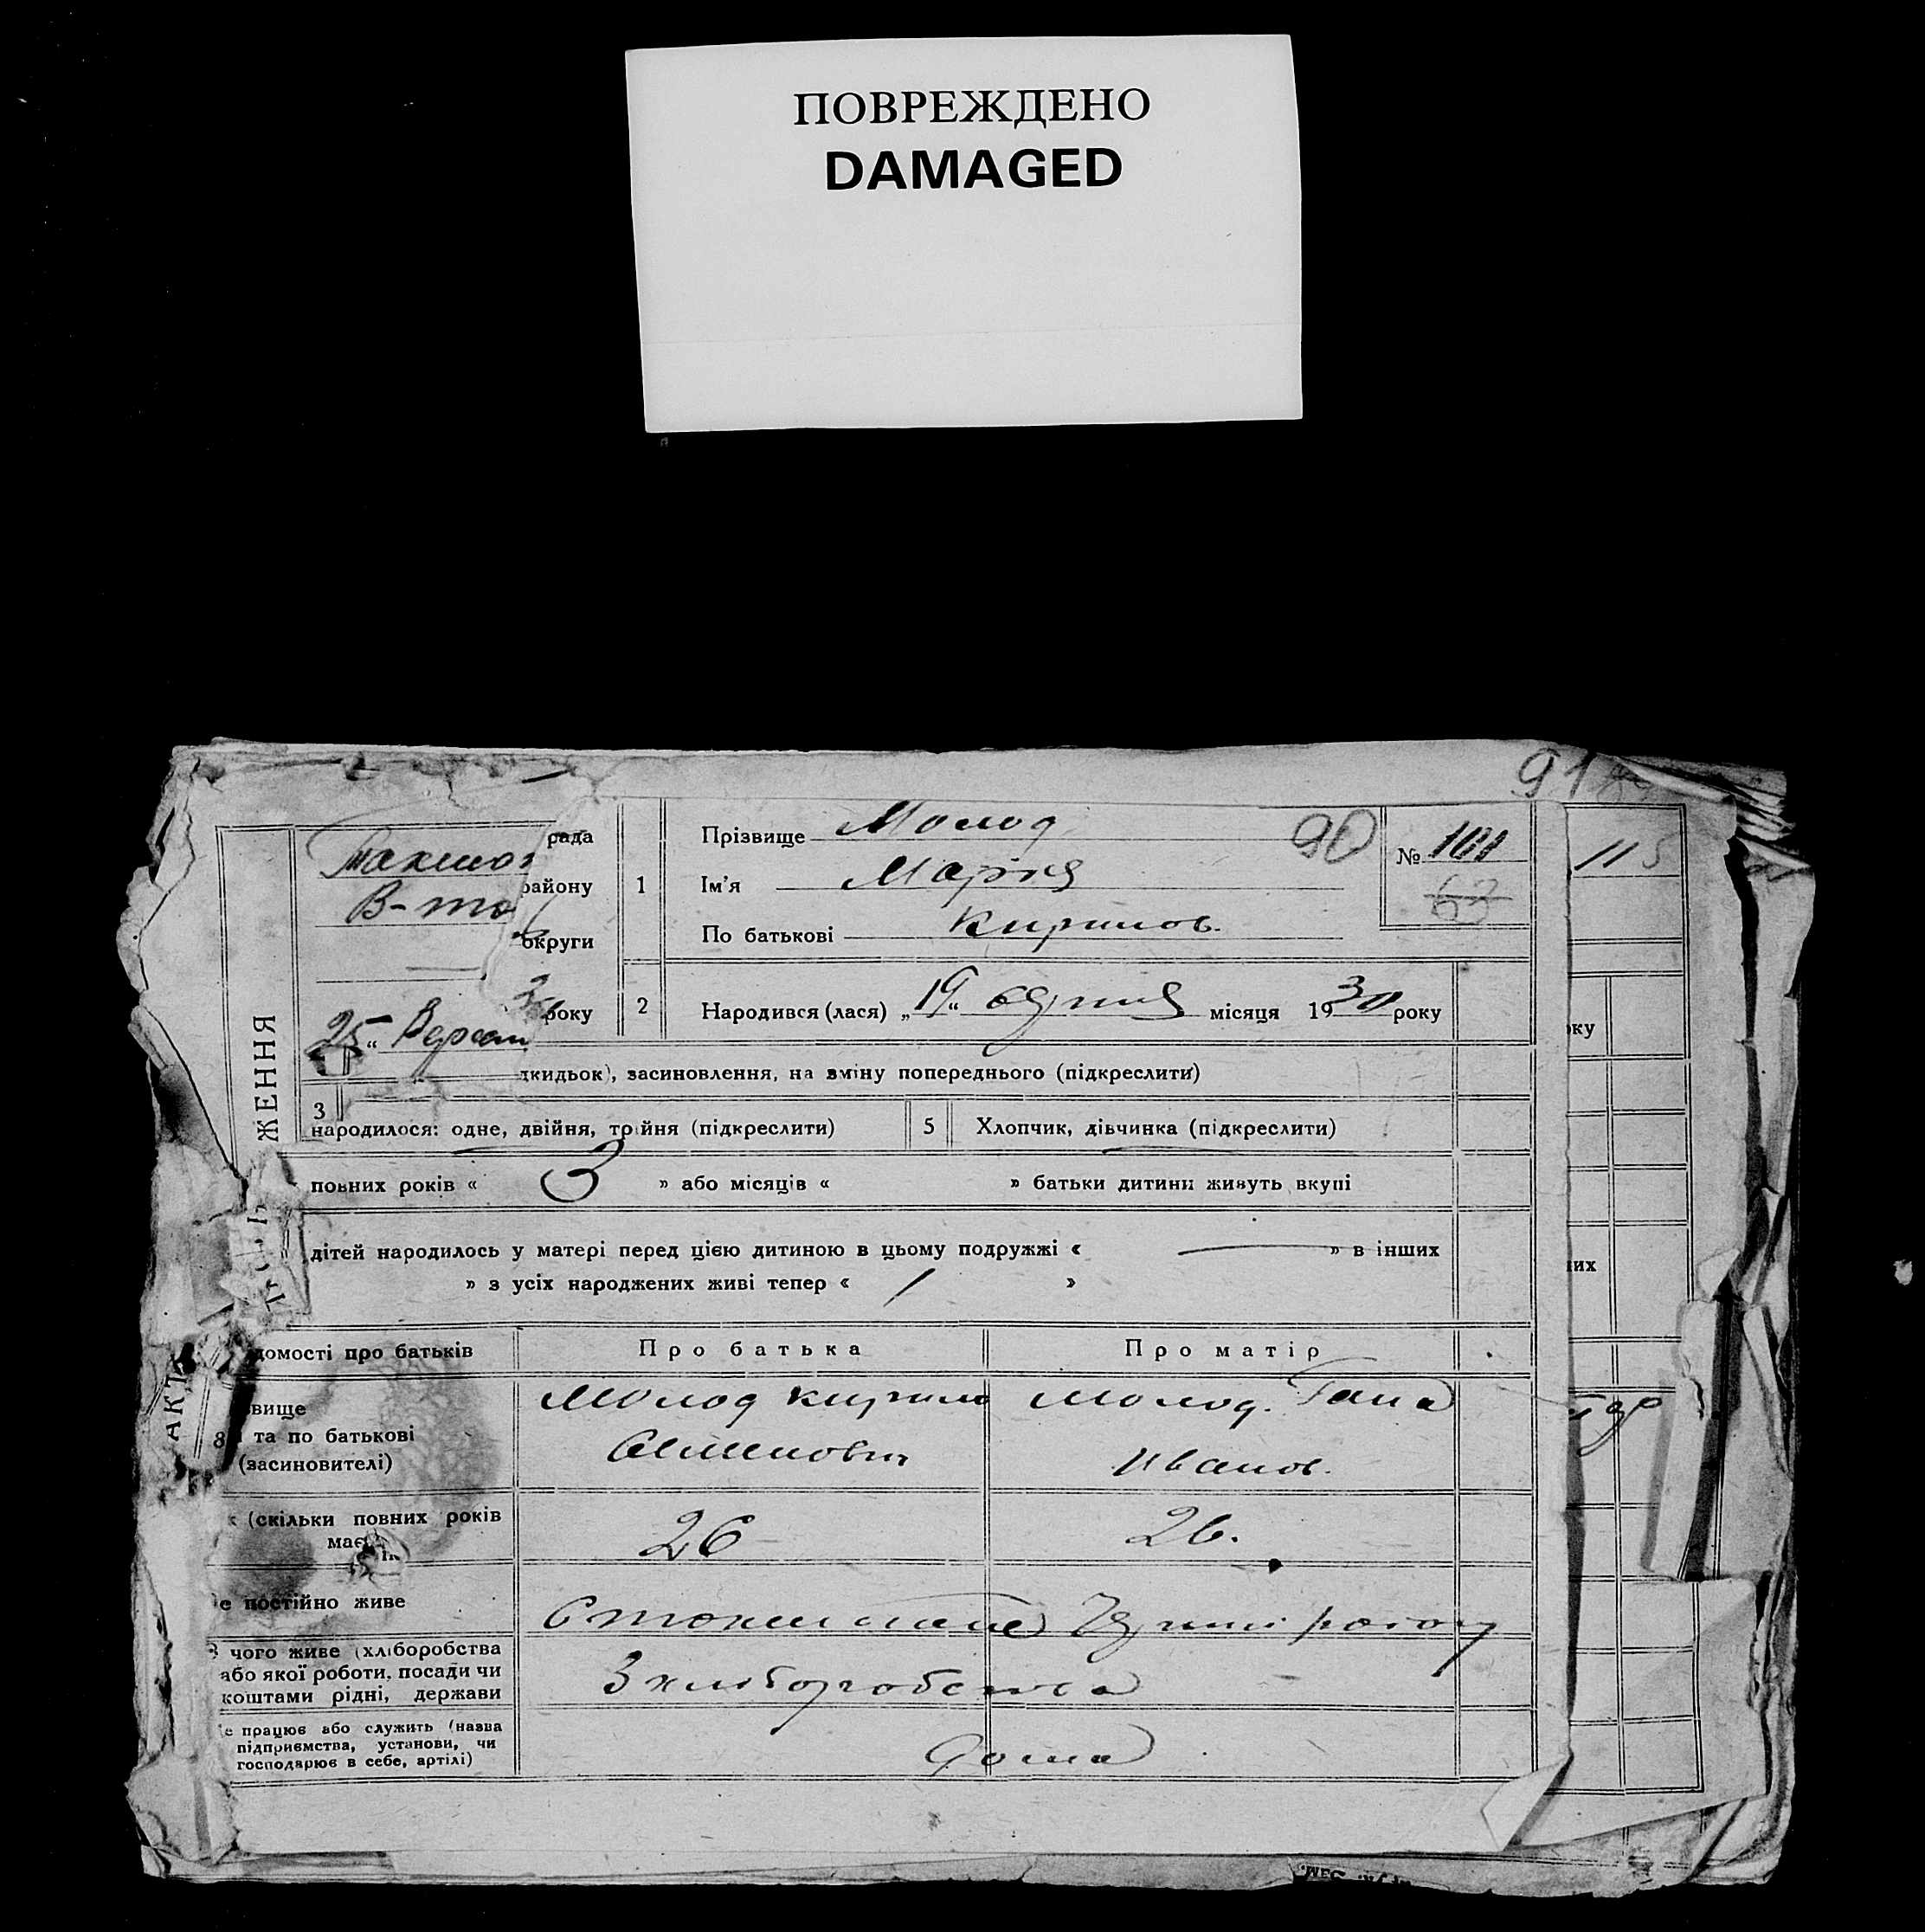 ПОВРЕЖДЕНО
DAMAGED
91
рада
району
В-то
округи
року
25 "
1
Прізвище Молод
Ім'я Марія
По батькові Кирилов.
90
№ 101
63
115
2
Народився (лася) „19“ серпня місяця 1930 року
оку
дкидьок), засиновлення, на зміну попереднього (підкреслити)
3
народилося: одне, двійня, трійня (підкреслити)
5
Хлопчик, дівчинка (підкреслити)
повних років « 3 » або місяців « » батьки дитини живуть вкупі
дітей народилось у матері перед цією дитиною в цьому подружжі « — » в інших
их
» з усіх народжених живі тепер « / »
ЖЕННЯ
АКТ
домості про батьків
Про батька
Про матір
8
вище
та по батькові
(засиновителі)
Молод Кирило
Семенович
Молод. Гана
Иванов.
к (скільки повних років
має
26
26.
е постійно живе
З чого живе (хліборобства
або якої роботи, посади чи
коштами рідні, держави
З хліборобства
е працює або служить (назва
підприємства, установи, чи
господарює в себе, артілі)
дома